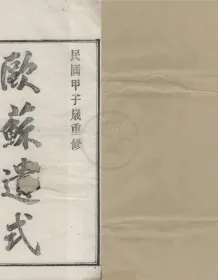 民國甲子歲重修
歐蘇遺式